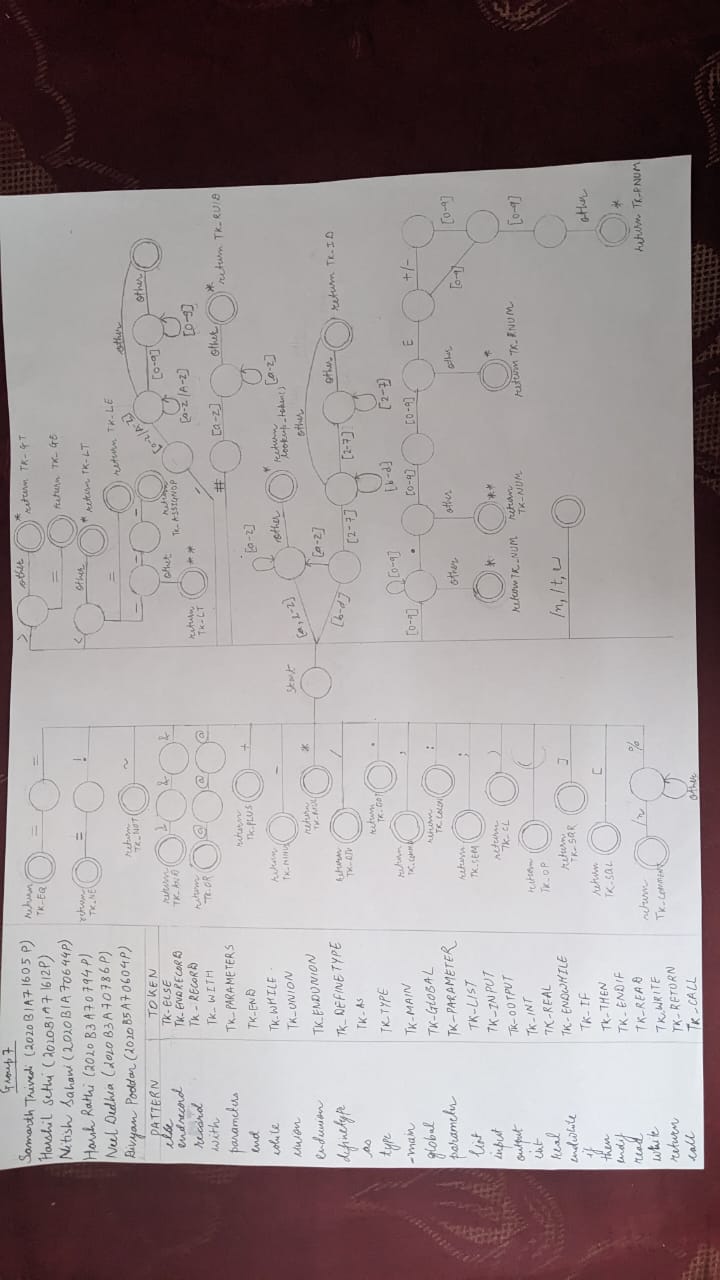 Group 7
Samarth Trivedi (2020B1A71605P)
Harshil Sethi (2020B1A71612P)
Nitish Sahani (2020B1A70644P)
Harsh Rathi (2020B3A70794P)
Neel Dedhia (2020B3A70786P)
Divyan Poddar (2020B5A70604P)
PATTERN TOKEN
else TK-ELSE
endrecord TK-ENDRECORD
record TK-RECORD
with TK-WITH
parameters TK-PARAMETERS
end TK-END
while TK-WHILE
union TK-UNION
endunion TK-ENDUNION
definetype TK-DEFINETYPE
as TK-AS
type TK-TYPE
-main TK-MAIN
global TK-GLOBAL
parameter TK-PARAMETER
list TK-LIST
input TK-INPUT
output TK-OUTPUT
int TK-INT
real TK-REAL
endwhile TK-ENDWHILE
if TK-IF
then TK-THEN
endif TK-ENDIF
read TK-READ
write TK-WRITE
return TK-RETURN
call TK-CALL
return TK-EQ = =
return TK_NE = !
return TK_NOT ~
return TK_AND & & &
return TK_OR @ @ @
return TK_PLUS +
return TK_MINUS -
return TK_MUL *
return TK_DIV /
return TK_DOT .
return TK_COMMA ,
return TK_COLON :
return TK_SEM ;
return TK_CL )
return TK_OP (
return TK_SQR ]
return TK_SQL [
return TK_COMMENT /n %
other
Start
> other * return TK-GT
= return TK-GE
< other * return TK-LT
= return TK-LE
- - -
return TK-ASSIGNOP
other
return TK-LT **
- [a-z|A-Z] [0-9] other
other
[a-z|A-Z] [0-9]
# [a-z] other * return TK_RUID
[a-z]
[a-z]
[a,e-z] other * return lookup_token()
[a-z]
other
[b-d] [2-7] [2-7] other return TK-ID
[b-d] [2-7]
[0-9]
[0-9] . [0-9] [0-9] E +/-
other other other [0-9] [0-9]
* ** *
return TK_NUM return TK-NUM return TK_RNUM
[0-9]
/n, /t, ␣
other
*
return TK-RNUM